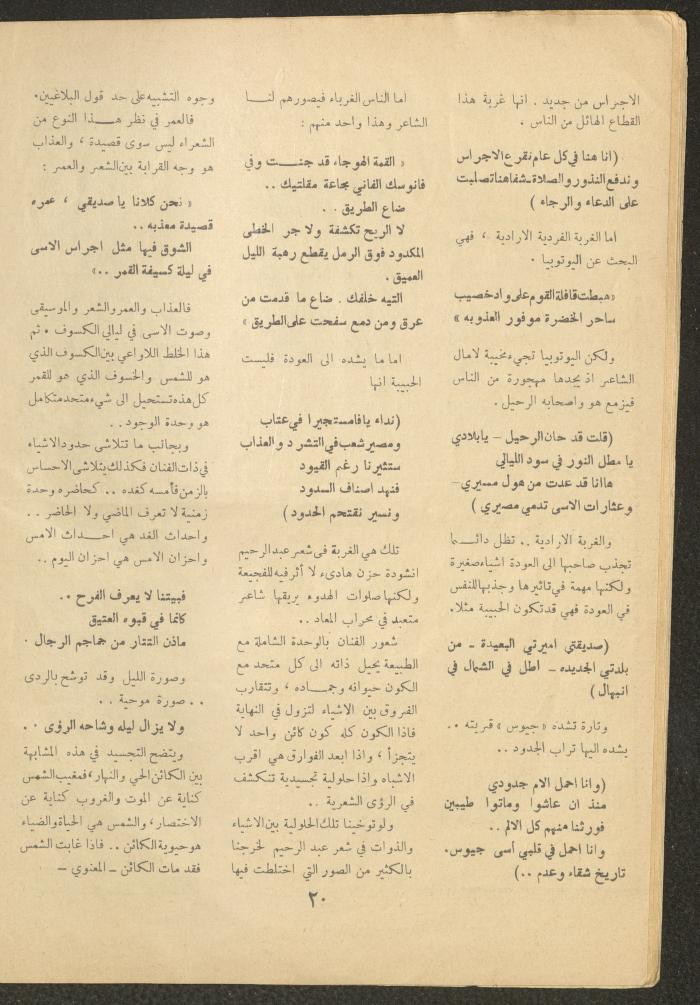 الاجراس من جديد . انها غربة هذا
القطاع الهائل من الناس .
(انا هنا في كل عام نقرع الاجراس
وندفع النذور والصلاة ــ شفاهنا تصلبت
على الدعاء والرجاء )
اما الغربة الفردية الارادية ، فهي
البحث عن اليوتوبيا .
«هبطت قافلة القوم على واد خصيب
ساحر الخضرة موفور العذوبه »
ولكن اليوتوبيا تجيء مخيبة لامال
الشاعر اذ يجدها مهجورة من الناس
فيزمع هو واصحابه الرحيل .
(قلت قد حان الرحيل – يا بلادي
يا مطل النور في سود الليالي
ها انا قد عدت من هول مسيري –
وعثارات الاسى تدمي مصيري )
والغربة الارادية .. تظل دائـــما
تجذب صاحبها الى العودة اشياء صغيرة
ولكنها مهمة في تاثيرها وجذبها للنفس
في العودة فهي قد تكون الحبيبة مثلا.
(صديقتي اميرتي البعيدة ـ من
بلدتي الجديده ـ اطل في الشمال في
ابتهال )
وتارة تشده « جيوس » قريته ..
يشده اليها تراب الجدود ..
(وانا احمل الام جدودي
منذ ان عاشوا وماتوا طيبين
فورثنا منهم كل الالم ..
وانا احمل في قلبي أسى جيوس.
تاريخ شقاء وعدم ..)
اما الناس الغرباء فيصورهم لنـــا
الشاعر وهذا واحد منهم :
« القمة الهوجاء قد جنـــت وفي
فانوسك الفاني مجاعة مقلتيك ..
ضاع الطريق . .
لا الريح تكشفة ولا جر الخطى
المكدود فوق الرمل يقطع رهبة الليل
العميق .
التيه خلفك . ضاع ما قدمت من
عرق ومن دمع سفحت على الطريق »
اما ما يشده الى العودة فليست
الحبيبة انها
(نداء يافا مستجيرا في عتاب
ومصير شعب في التشرد والعذاب
ستثيرنا رغم القيود
فنهد اصناف السدود
ونسير نقتحم الحدود )
تلك هي الغربة في شعر عبد الرحيم
انشودة حزن هادىء لا أثر فيه للفجيعة
ولكنها صلوات الهدوء يريقها شاعر
متعبد في محراب المعاد ..
شعور الفنان بالوحدة الشاملة مع
الطبيعة يحيل ذاته الى كل متحد مع
الكون حيوانه وجمـــاده ، وتتقارب
الفروق بين الاشياء لتزول في النهاية
فاذا الكون كله كون كائن واحد لا
يتجزأ ، واذا ابعد الفوارق هي اقرب
الاشباه واذا حلولية تجسيدية تتكشف
في الرؤى الشعرية ..
ولو توخينا تلك الحلولية بين الاشياء
والذوات في شعر عبد الرحيم لخرجنا
بالكثير من الصور التي اختلطت فيها
وجوه التشبيه على حد قول البلاغيين.
فالعمر في نظر هـــذا النوع من
الشعراء ليس سوى قصيدة ، والعذاب
هو وجه القرابة بين الشعر والعمر :
« نحن كلانا يا صديقي ، عمره
قصيدة معذبه ..
الشوق فيها مثل اجراس الاسى
في ليلة كسيفة القمر ..»
فالعذاب والعمر والشعر والموسيقى
وصوت الاسى في ليالي الكسوف . ثم
هذا الخلط اللاواعي بين الكسوف الذي
هو للشمس والخسوف الذي هو للقمر
كل هذه تستحيل الى شيء متحد متكامل
هو وحدة الوجود ..
وبجانب ما تتلاشى حدود الاشياء
في ذات الفنان فكذلك يتلاشى الاحساس
بالزمن فأمسه كغده .. كحاضره وحدة
زمنية لا تعرف الماضي ولا الحاضر ..
واحداث الغد هي احـــداث الامس
واحزان الامس هي احزان اليوم ..
فبيتنا لا يعرف الفرح ..
كانما في قبوه العتيق
ماذن التتار من جماجم الرجال .
وصورة الليل وقد توشح بالردى
.. صورة موحية ..
ولا يزال ليله وشاحه الرؤى ..
ويتضح التجسيد في هذه المشابهة
بين الكائن الحي والنهار ، فمغيب الشمس
كناية عن الموت والغروب كناية عن
الاختصار ، والشمس هي الحياة والضياء
هو حيوية الكائن .. فاذا غابت الشمس
فقد مات الكائن ـ المعنوي ـ
٢٠